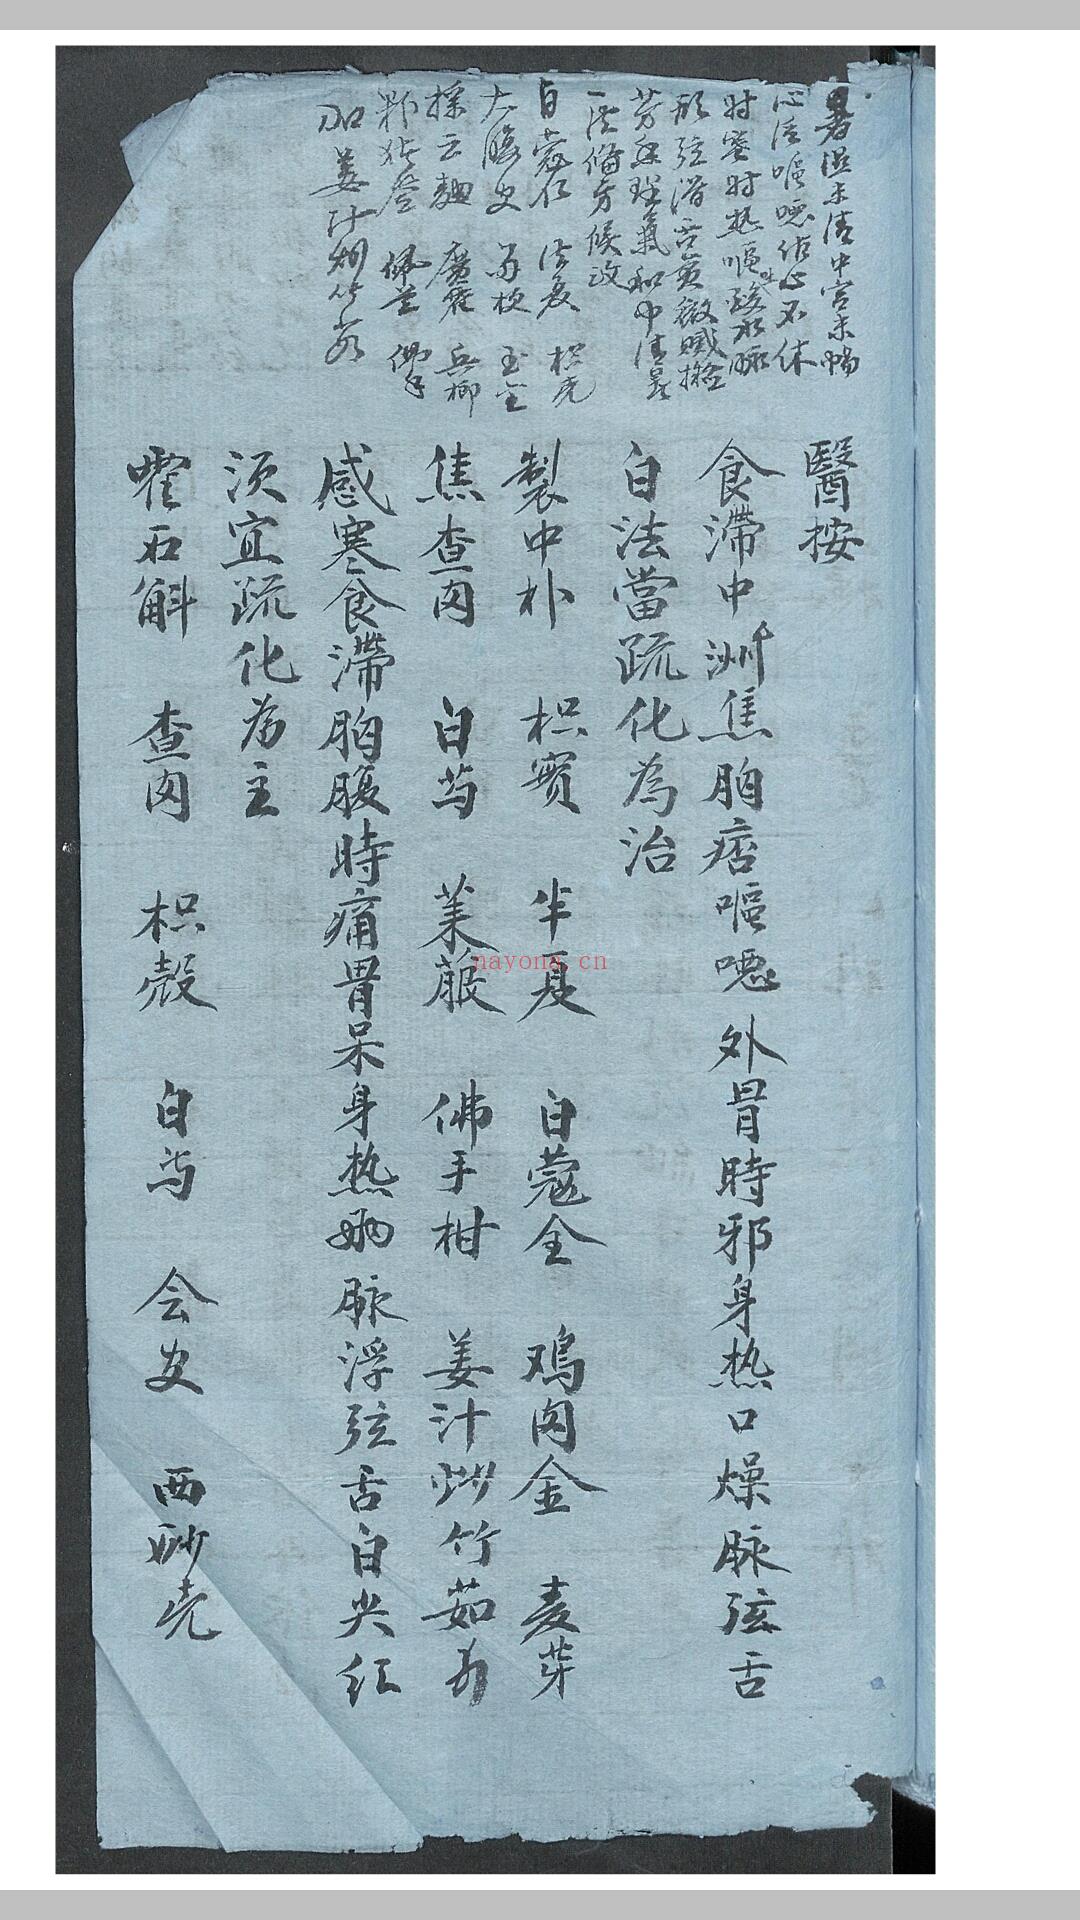 暑湿未清中宫未暢
心泛嘔噁 心不休
时寒时热嘔吐酸水脉
弦滑舌黄微膩擬
芳香理氣和中清暑
一法備方候政
白蔻仁 法夏 枳壳
大腹皮 苏梗 玉金
採云麯 廣藿 兵榔
佩兰 佛手
加姜汁炒竹茹
醫按
食滯中洲焦胸痞嘔噁外冒時邪身热口燥脉弦舌
白法當疏化為治
製中朴 枳實 半夏 白蔻仝 鸡内金 麦芽
焦查肉 白芍 莱菔 佛手柑 姜汁炒竹茹
感寒食滯胸腹時痛胃呆身热 脉浮弦舌白尖红
须宜疏化為主
霍石斛 查肉 枳殼 白芍 会皮 西砂壳
nayona.cn